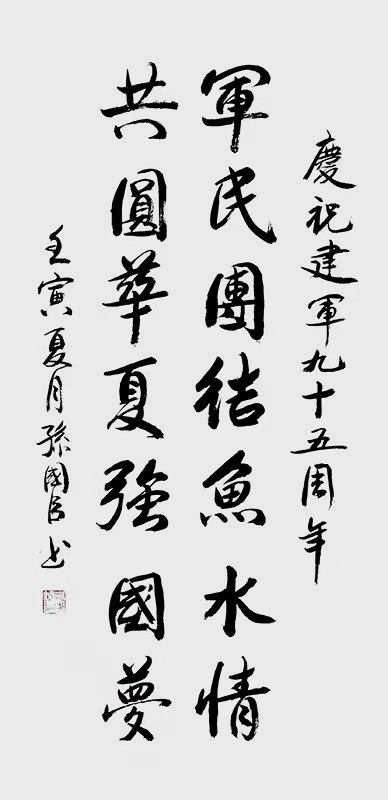 慶祝建軍九十五周年
軍民團結魚水情
共圓華夏強國夢
壬寅夏月孫國良书